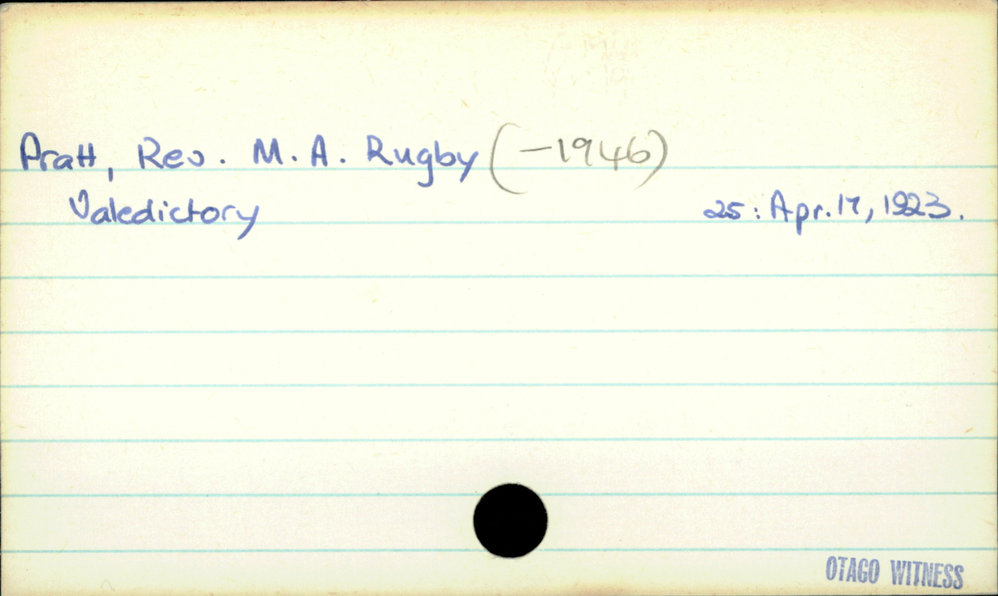 Pratt, Rev. M. A. Rugby (-1946)
Valedictory 25: Apr. 17, 1923.
OTAGO WITNESS